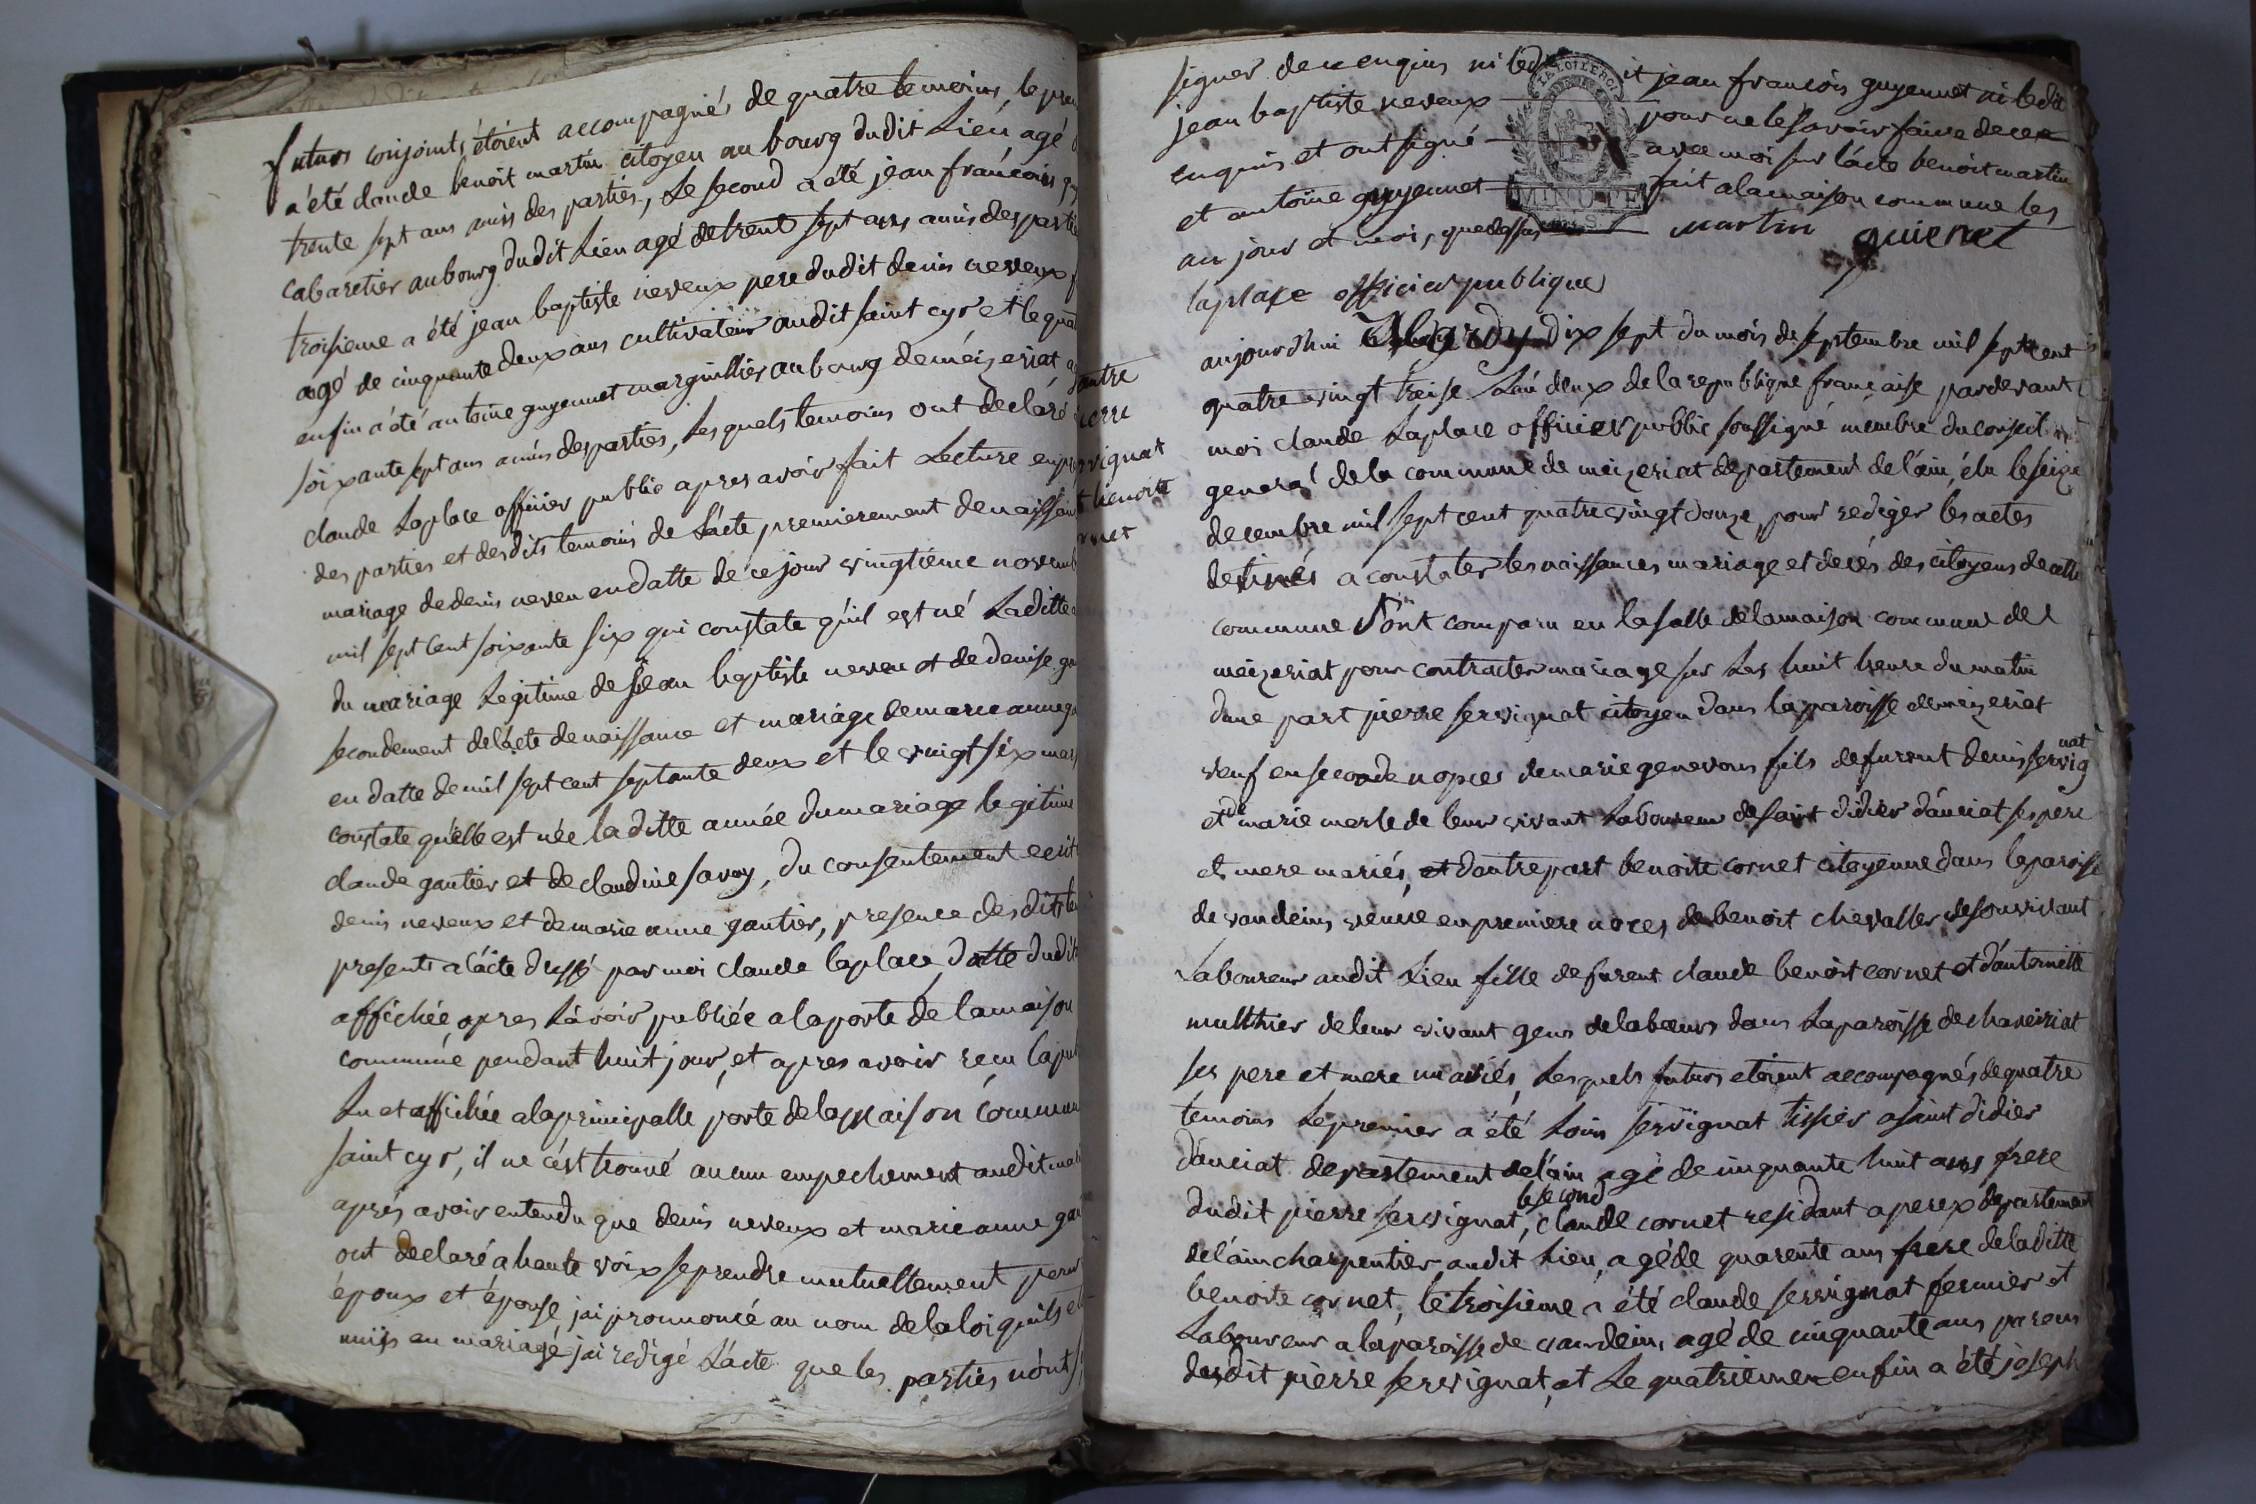 futurs conjoints étoient accompagnés de quatre temoins, le pre
a été claude benoit martin citoyen au bourg dudit Lieu agé d
trente sept ans amis des parties, Le second a été jean françois
cabaretier au bourg dudit Lieu agé de trente sept ans amis des partie
troisieme a été jean baptiste neveux pere dudit denis neveux
agé de cinquante deux ans cultivateur audit saint cyr et le quat
enfin a été antoine guyennet marguillier au bourg de méizeriat
soixante sept ans amis des parties, Les quels temoins ont declaré
claude Laplace officier public apres avoir fait Lecture en pre
des parties et desdits temoins de L'acte premierement de naissan
mariage de denis neveu en datte de ce jour vingtieme novemb
mil sept cent soixante six qui constate qu'il est né Laditte
du mariage Legitime de Jean baptiste neveu et de denise
secondement de L'acte de naissance et mariage de marie anne
en datte de mil sept cent septante deux et le vingt six
constate qu'elle est née la ditte année du mariage legitime
claude gautier et de claudine savoy, du consentement
denis neveux et de marie anne gautier, presence des dits te
presents a l'acte dressé par moi claude laplace, datte dudit
affichée, apres L'avoir publiée a la porte de la maison
commune pendant huit jour, et apres avoir recu la pub
Lu et affichée a la principalle porte de la maison commun
saint cyr, il ne c'est trouvé aucun empechement audit ma
après avoir entendu que denis neveux et marie anne gau
ont declaré a haute voix se prendre mutuellement pour
époux et épouse j'ai prononcé au nom de la loi qu'ils
unis en mariage j'ai redigé L'acte que les parties n'ont
autre
ierre
rvignat
benoite
rnet
signer de ce enquis ni led it jean francois guyennet ni ledit
jean baptiste neveux pour ne le savoir faire de ce
enquis et ont signé avec moi sur l'acte benoit martin
et antoine guyennet fait a la maison commune les
LA LOI LE ROI
MINUTE
4 S
an jour et mois, que dessus martin guienet
laplace officier publique
aujourdhui mardy dix sept du mois de septembre mil sept cent
quatre vingt treise L'an deux de la republique française pardevant
moi claude Laplace officier public soussigné membre du conseil
general de la commune de meizeriat departement de l'ain, élu le seize
decembre mil sept cent quatre vingt douze, pour rediger les actes
destinés a constater les naissances mariage et decés des citoyens de cette
commune Sont comparu en la salle de la maison commune de
meizeriat pour contracter mariage sur Les huit heure du matin
dune part pierre servignat citoyen dans la paroisse de meizeriat
veuf en seconde nopces de marie genevons fils de furent denis servignat
et de marie merle de leur vivant Laboureur de saint didier d'aussiat ses pere
et mere mariés, et d'autre part benoite cornet citoyenne dans la paroisse
de vandeins veuve en premiere noces de benoit chevallier de son vivant
Laboureur audit Lieu fille de furent claude benoit cornet et d'antoinette
multhier de leur vivant gens de labœurs dans La paroisse de chaveiriat
ses pere et mere mariés, Les quels futurs etoient accompagnés de quatre
temoins Le premier a été Louis servignat tissier a saint didier
d'aussiat departement de l'ain agé de cinquante huit ans frere
dudit pierre servignat, le second claude cornet residant a perex departement
de l'ain charpentier audit Lieu, agé de quarente ans frere de laditte
benoite cornet, le troisieme a été claude servignat fermier et
Laboureur a la paroisse de vandeins agé de cinquante ans parens
dudit pierre servignat, et Le quatrieme enfin a été joseph